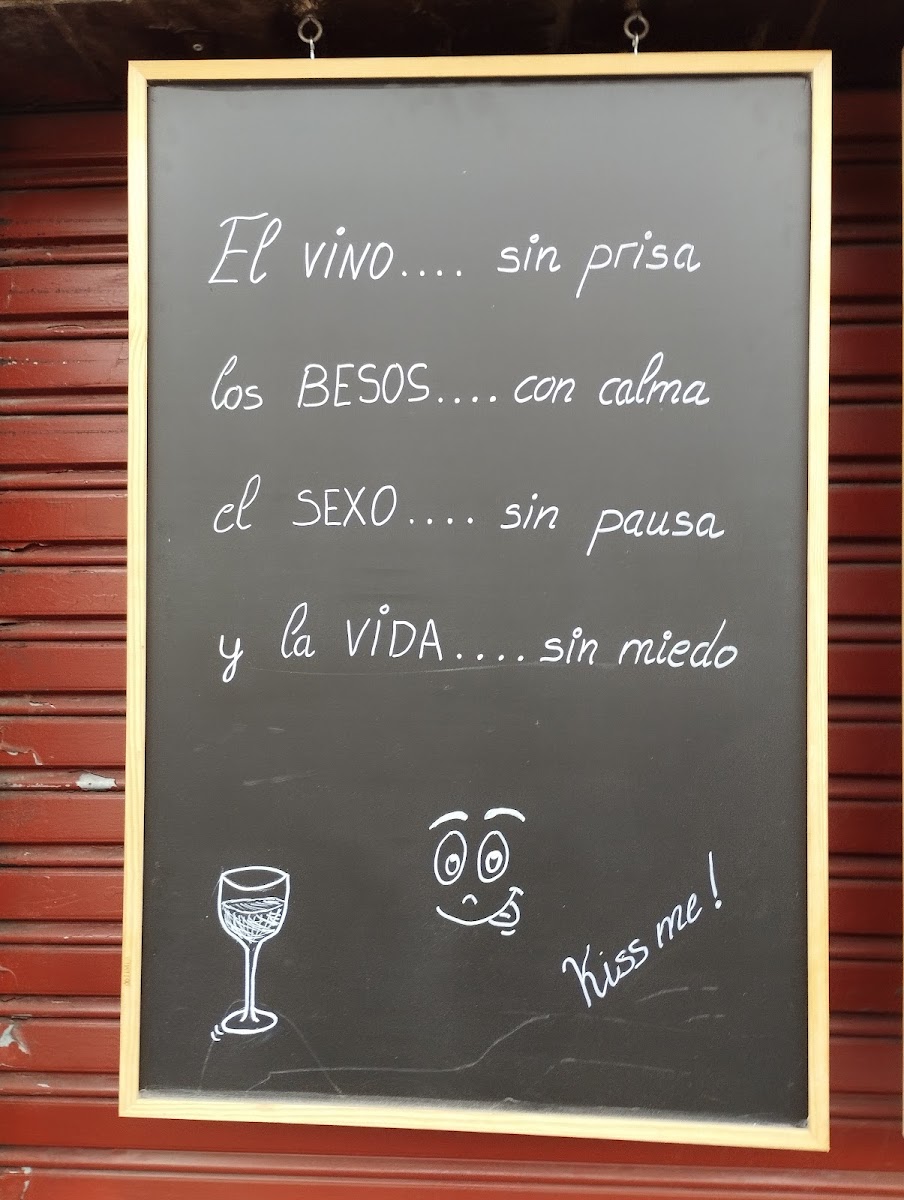 El VINO.... sin prisa
los BESOS.... con calma
el SEXO.... sin pausa
y la VIDA.... sin miedo
Kiss me!